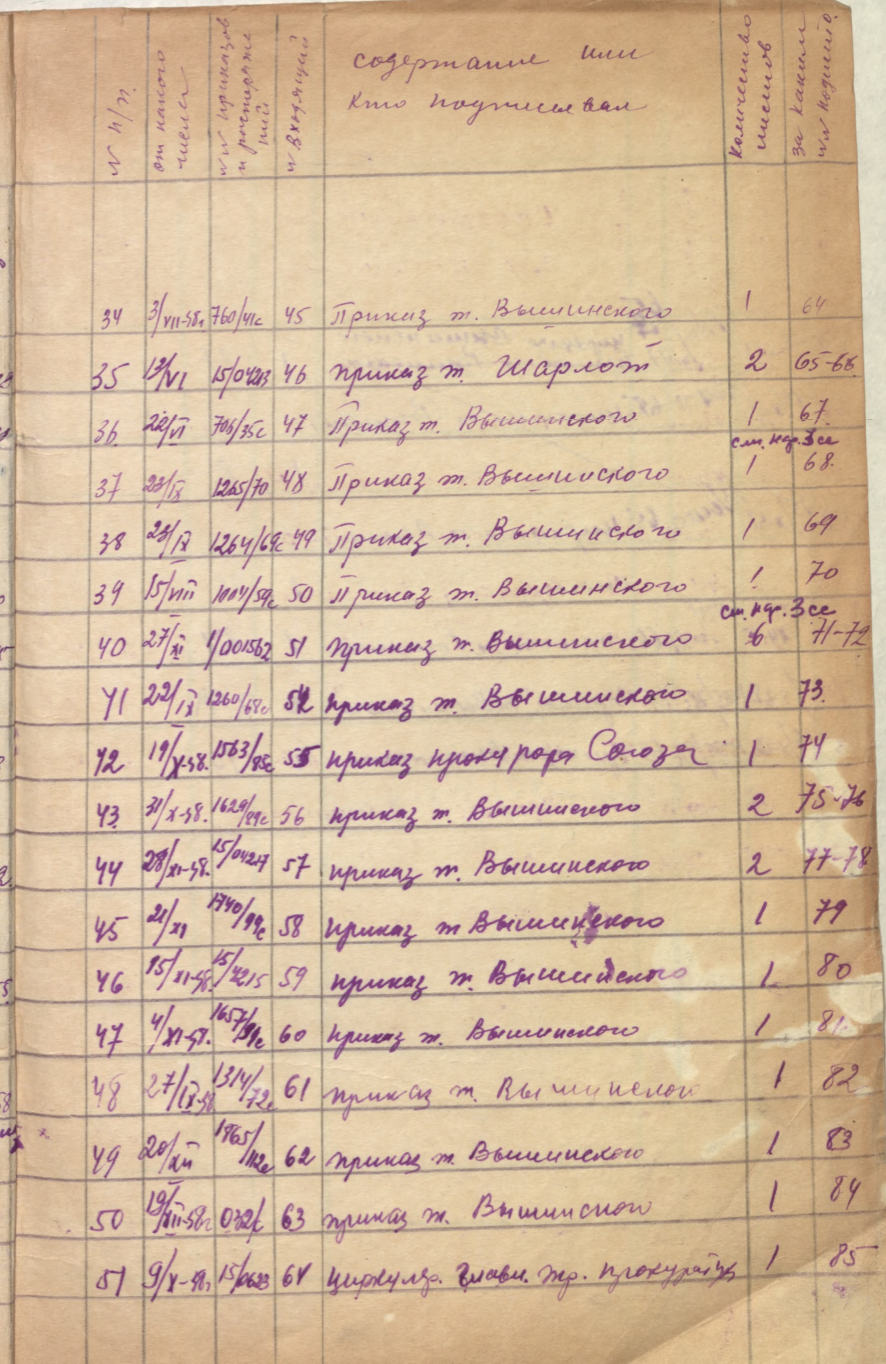 N п/п. от какого числа NN приказов и распоряжений N входящий содержание или кто подписывал количество листов за каким NN подшито.
34 3/VII-38г 760/41с 45 Приказ т. Вышинского 1 64
35 13/VI 15/04213 46 приказ т. Шарлот 2 65-66.
36 22/VI 706/35с 47 Приказ т. Вышинского 1 67.
37 23/IX 1265/70 48 Приказ т. Вышинского 1 68.
38 23/IX 1264/69с 49 Приказ т. Вышинского 1 69
39 15/VIII 1004/59с 50 Приказ т. Вышинского 1 70
40 27/XI 1/001562 51 приказ т. Вышинского 6 71-72
41 22/IX 1260/68с 54 приказ т. Вышинского 1 73.
42 19/X-38. 1563/85с 55 приказ прокурора Союза 1 74
43 31/X-38. 1629/89с 56 приказ т. Вышинского 2 75-76
44 28/XI-38. 15/04217 57 приказ т. Вышинского 2 77-78
45 21/XI 1740/99с 58 приказ т Вышинского 1 79
46 15/XI-38. 15/4215 59 приказ т. Вышинского 1 80
47 4/XI-38. 1657/91с 60 приказ т. Вышинского 1 81.
48 27/IX-38 1314/72с 61 приказ т. Вышинского 1 82
49 20/XII 1865/112с 62 приказ т. Вышинского 1 83
50 19/XII-38г 032/с 63 приказ т. Вышинского 1 84
51 9/X-38г 15/0623 64 циркуляр. главн. тр. прокуратур 1 85